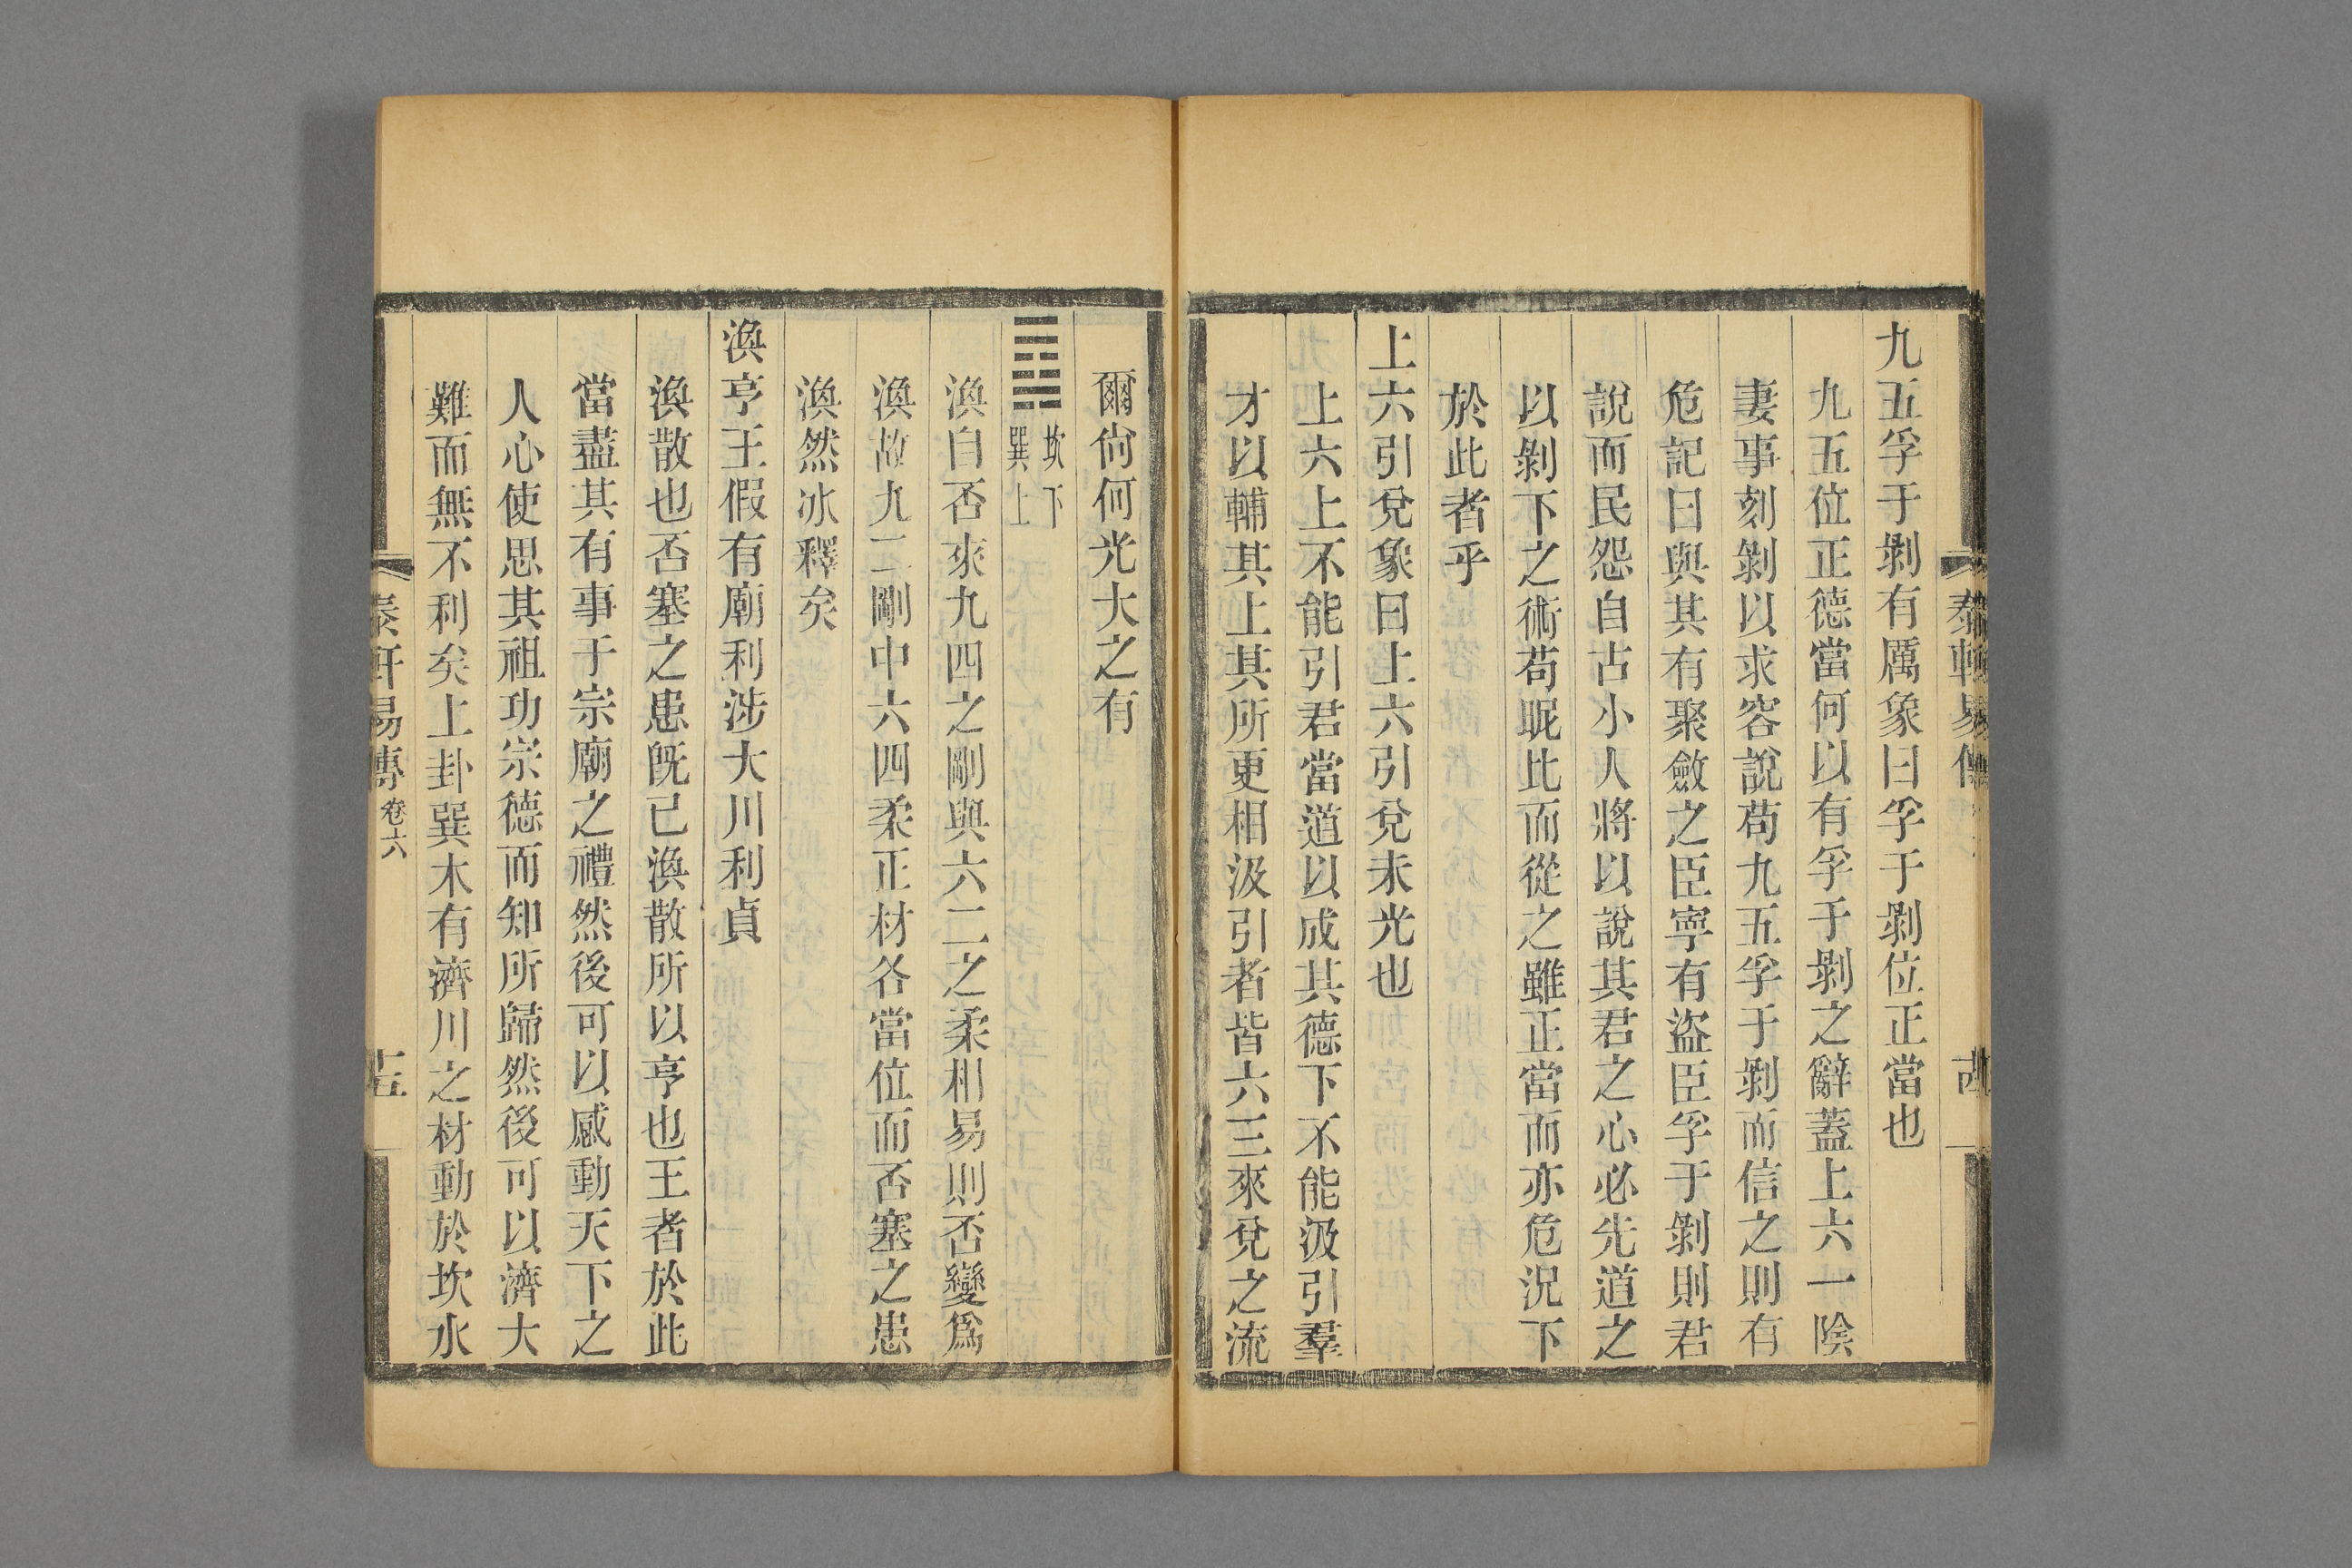 泰軒易傳
九五孚于剝有厲象曰孚于剝位正當也
九五位正德當何以有孚于剝之辭蓋上六一陰
妻事刻剝以求容說苟九五孚于剝而信之則有
危記曰與其有聚斂之臣寧有盜臣孚于剝則君
說而民怨自古小人將以說其君之心必先道之
以剝下之術苟昵比而從之雖正當而亦危況下
於此者乎
上六引兌象曰上六引兌未光也
上六上不能引君當道以成其德下不能汲引羣
才以輔其上其所更相汲引者皆六三來兌之流
爾尙何光大之有
䷺
坎下
巽上
渙自否來九四之剛與六二之柔相易則否變爲
渙故九二剛中六四柔正材各當位而否塞之患
渙然冰釋矣
渙亨王假有廟利涉大川利貞
渙散也否塞之患旣已渙散所以亨也王者於此
當盡其有事于宗廟之禮然後可以感動天下之
人心使思其祖功宗德而知所歸然後可以濟大
難而無不利矣上卦巽木有濟川之材動於坎水
泰軒易傳 卷六
十五